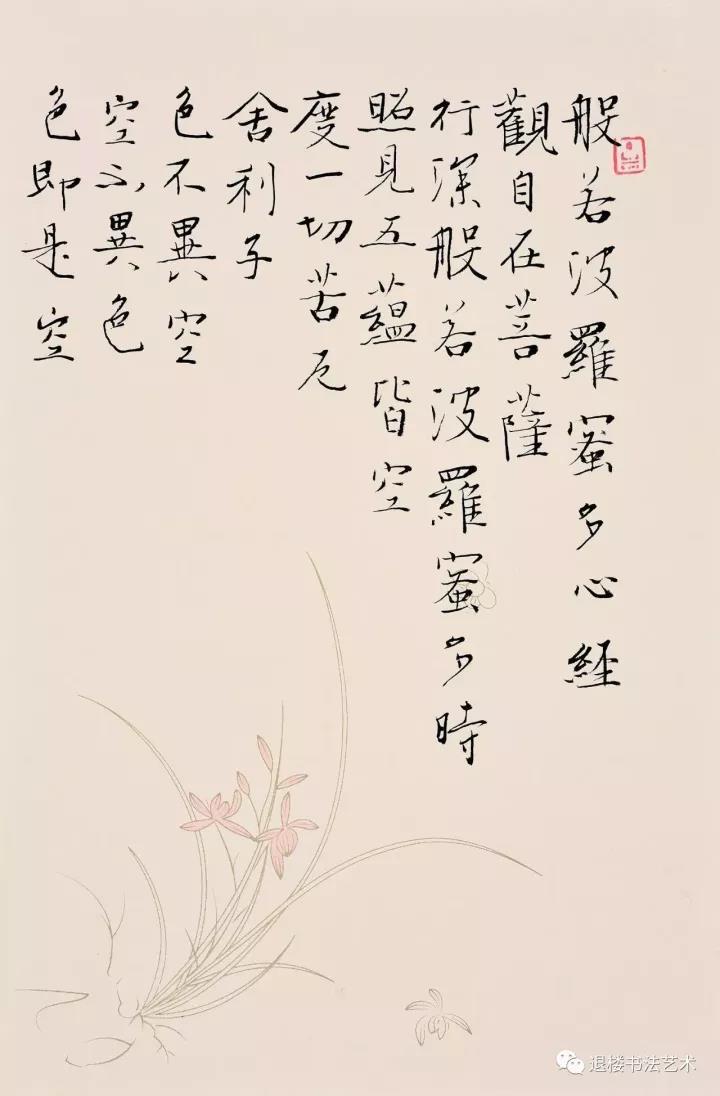 般若波羅蜜多心経
觀自在菩薩
行深般若波羅蜜多時
照見五蘊皆空
度一切苦厄
舍利子
色不異空
空不異色
色即是空
退楼书法艺术